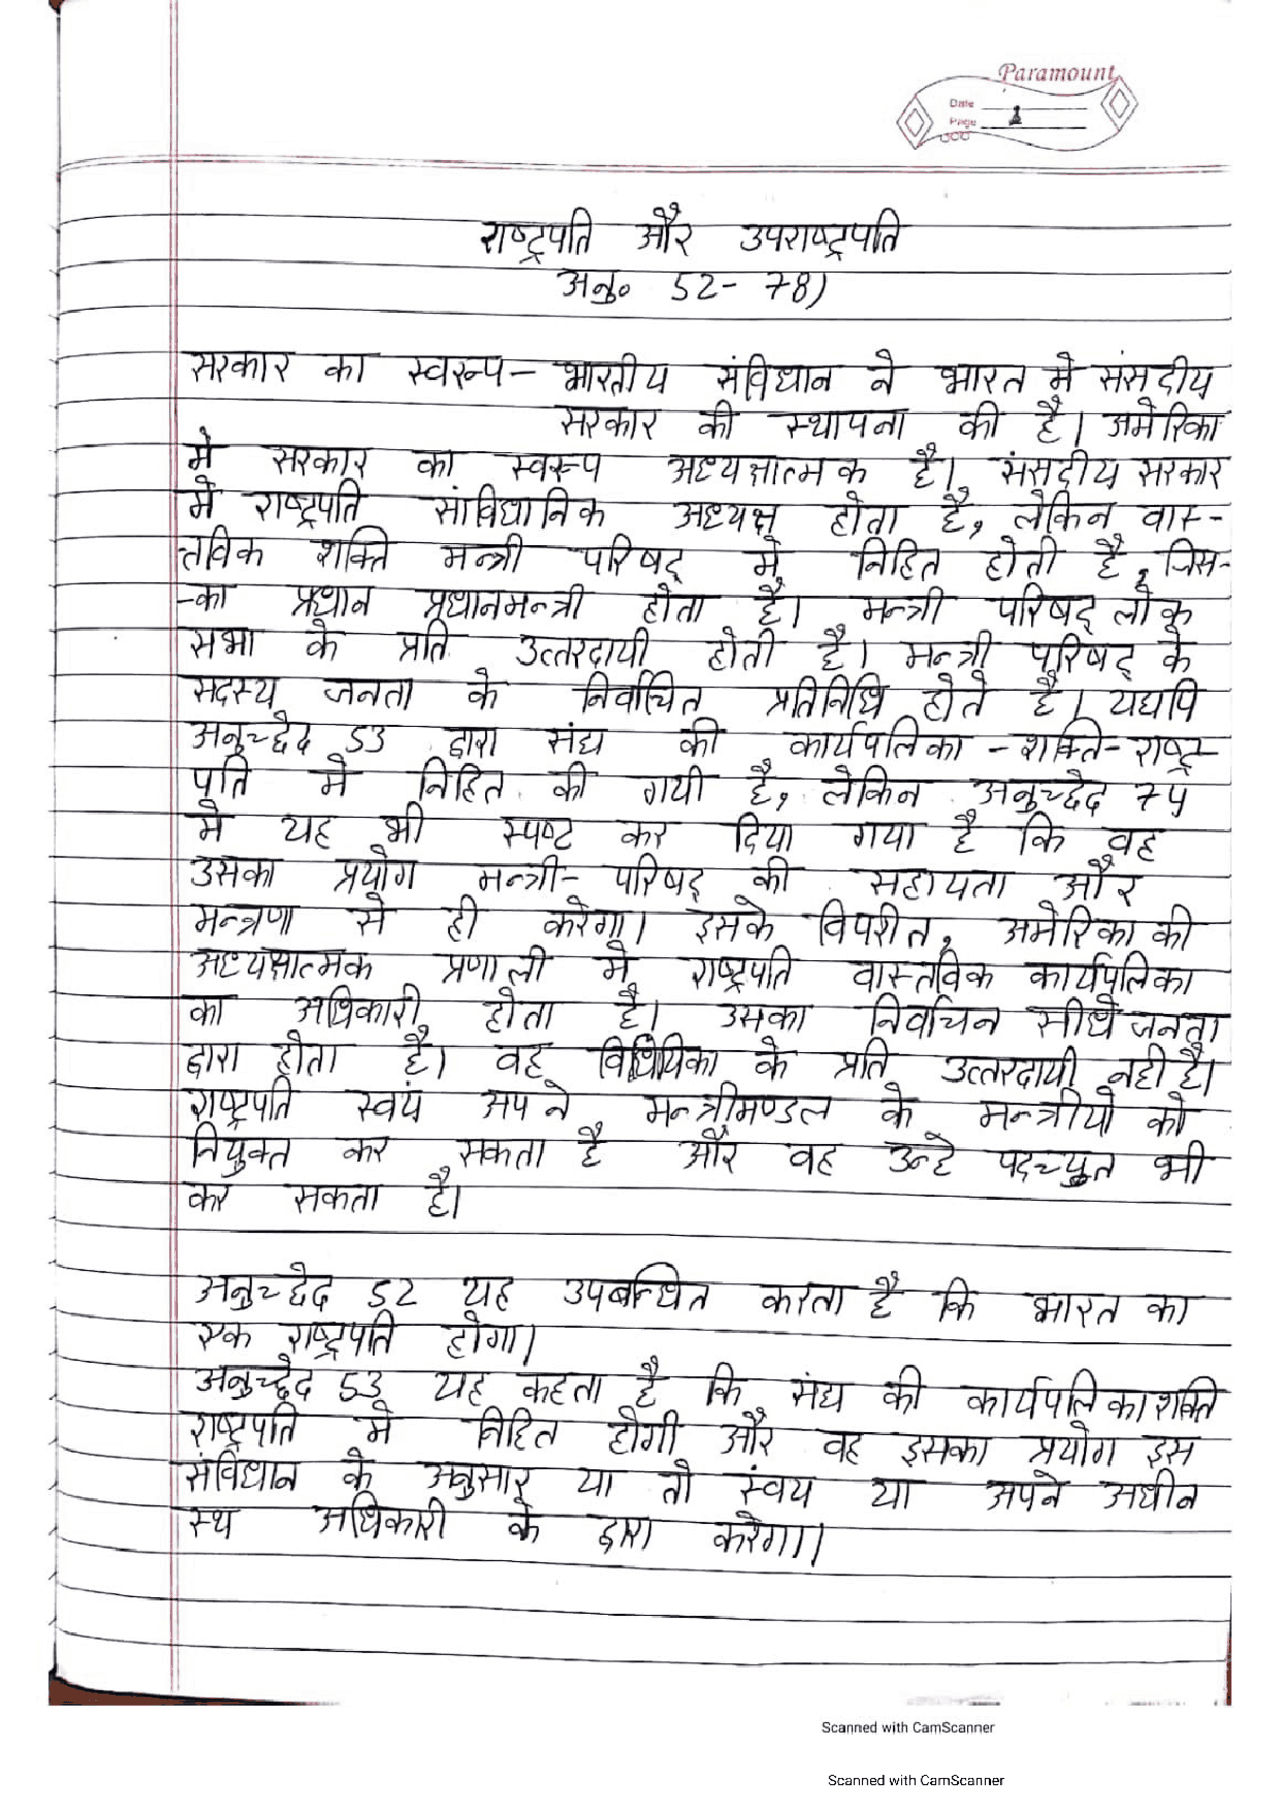 Paramount
Date
Page 1
राष्ट्रपति और उपराष्ट्रपति
अनु० 52- 78)
सरकार का स्वरूप- भारतीय संविधान ने भारत मे संसदीय
सरकार की स्थापना की है। अमेरिका
मे सरकार का स्वरूप अध्यक्षात्मक है। संसदीय सरकार
मे राष्ट्रपति सांविधानिक अध्यक्ष होता है, लेकिन वास्-
तविक शक्ति मन्त्री परिषद् मे निहित होती है, जिस-
-का प्रधान प्रधानमन्त्री होता है। मन्त्री परिषद् लोक
सभा के प्रति उत्तरदायी होती है। मन्त्री परिषद् के
सदस्य जनता के निर्वाचित प्रतिनिधि होते है। यद्यपि
अनुच्छेद 53 द्वारा संघ की कार्यपलिका -शक्ति- राष्ट्र
पति मे निहित की गयी है, लेकिन अनुच्छेद 74
मे यह भी स्पष्ट कर दिया गया है कि वह
उसका प्रयोग मन्त्री- परिषद् की सहायता और
मन्त्रणा से ही करेगा। इसके विपरीत, अमेरिका की
अध्यक्षात्मक प्रणाली मे राष्ट्रपति वास्तविक कार्यपलिका
का अधिकारी होता है। उसका निर्वाचन सीधे जनता
द्वारा होता है। वह विधियिका के प्रति उत्तरदायी नही है।
राष्ट्रपति स्वयं अपने मन्त्रीमण्डल के मन्त्रीयो को
नियुक्त कर सकता है और वह उन्हे पदच्युत भी
कर सकता है।
अनुच्छेद 52 यह उपबन्धित करता है कि भारत का
एक राष्ट्रपति होगा।
अनुच्छेद 53 यह कहता है कि संघ की कार्यपलिका शक्ति
राष्ट्रपति मे निहित होगी और वह इसका प्रयोग इस
संविधान के अनुसार या तो स्वंय या अपने अधीन
स्थ अधिकारी के द्वारा करेगा।
Scanned with CamScanner
Scanned with CamScanner